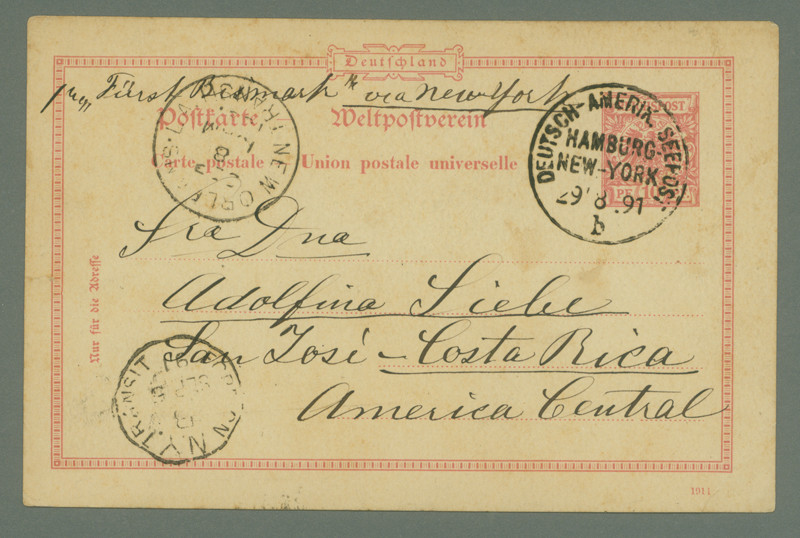 Deutschland
per „Fürst Bismark“ via New York
Postkarte Weltpostverein
Carte postale Union postale universelle
DEUTSCH-AMERIK. SEEPOST
HAMBURG-
NEW-YORK
29 8 .91
b
NEW ORLEANS LA
REICHSPOST
PF 10 PF
Sra Dna
Adolfina Siebe
San José - Costa Rica
America Central
Nur für die Adresse
N.Y. TRANSIT
SEP
1911